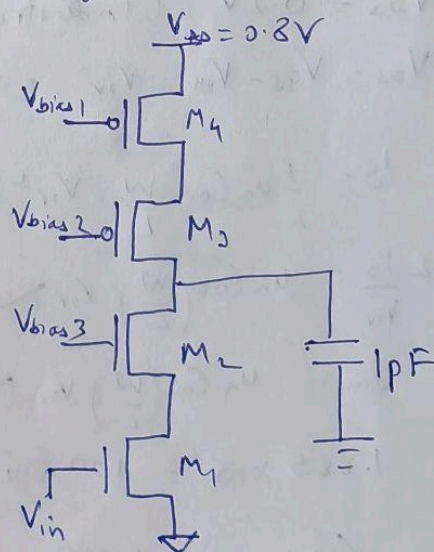 V_DD = 0.8V
Vbias1
M4
Vbias2
M3
Vbias3
M2
1pF
M1
Vin